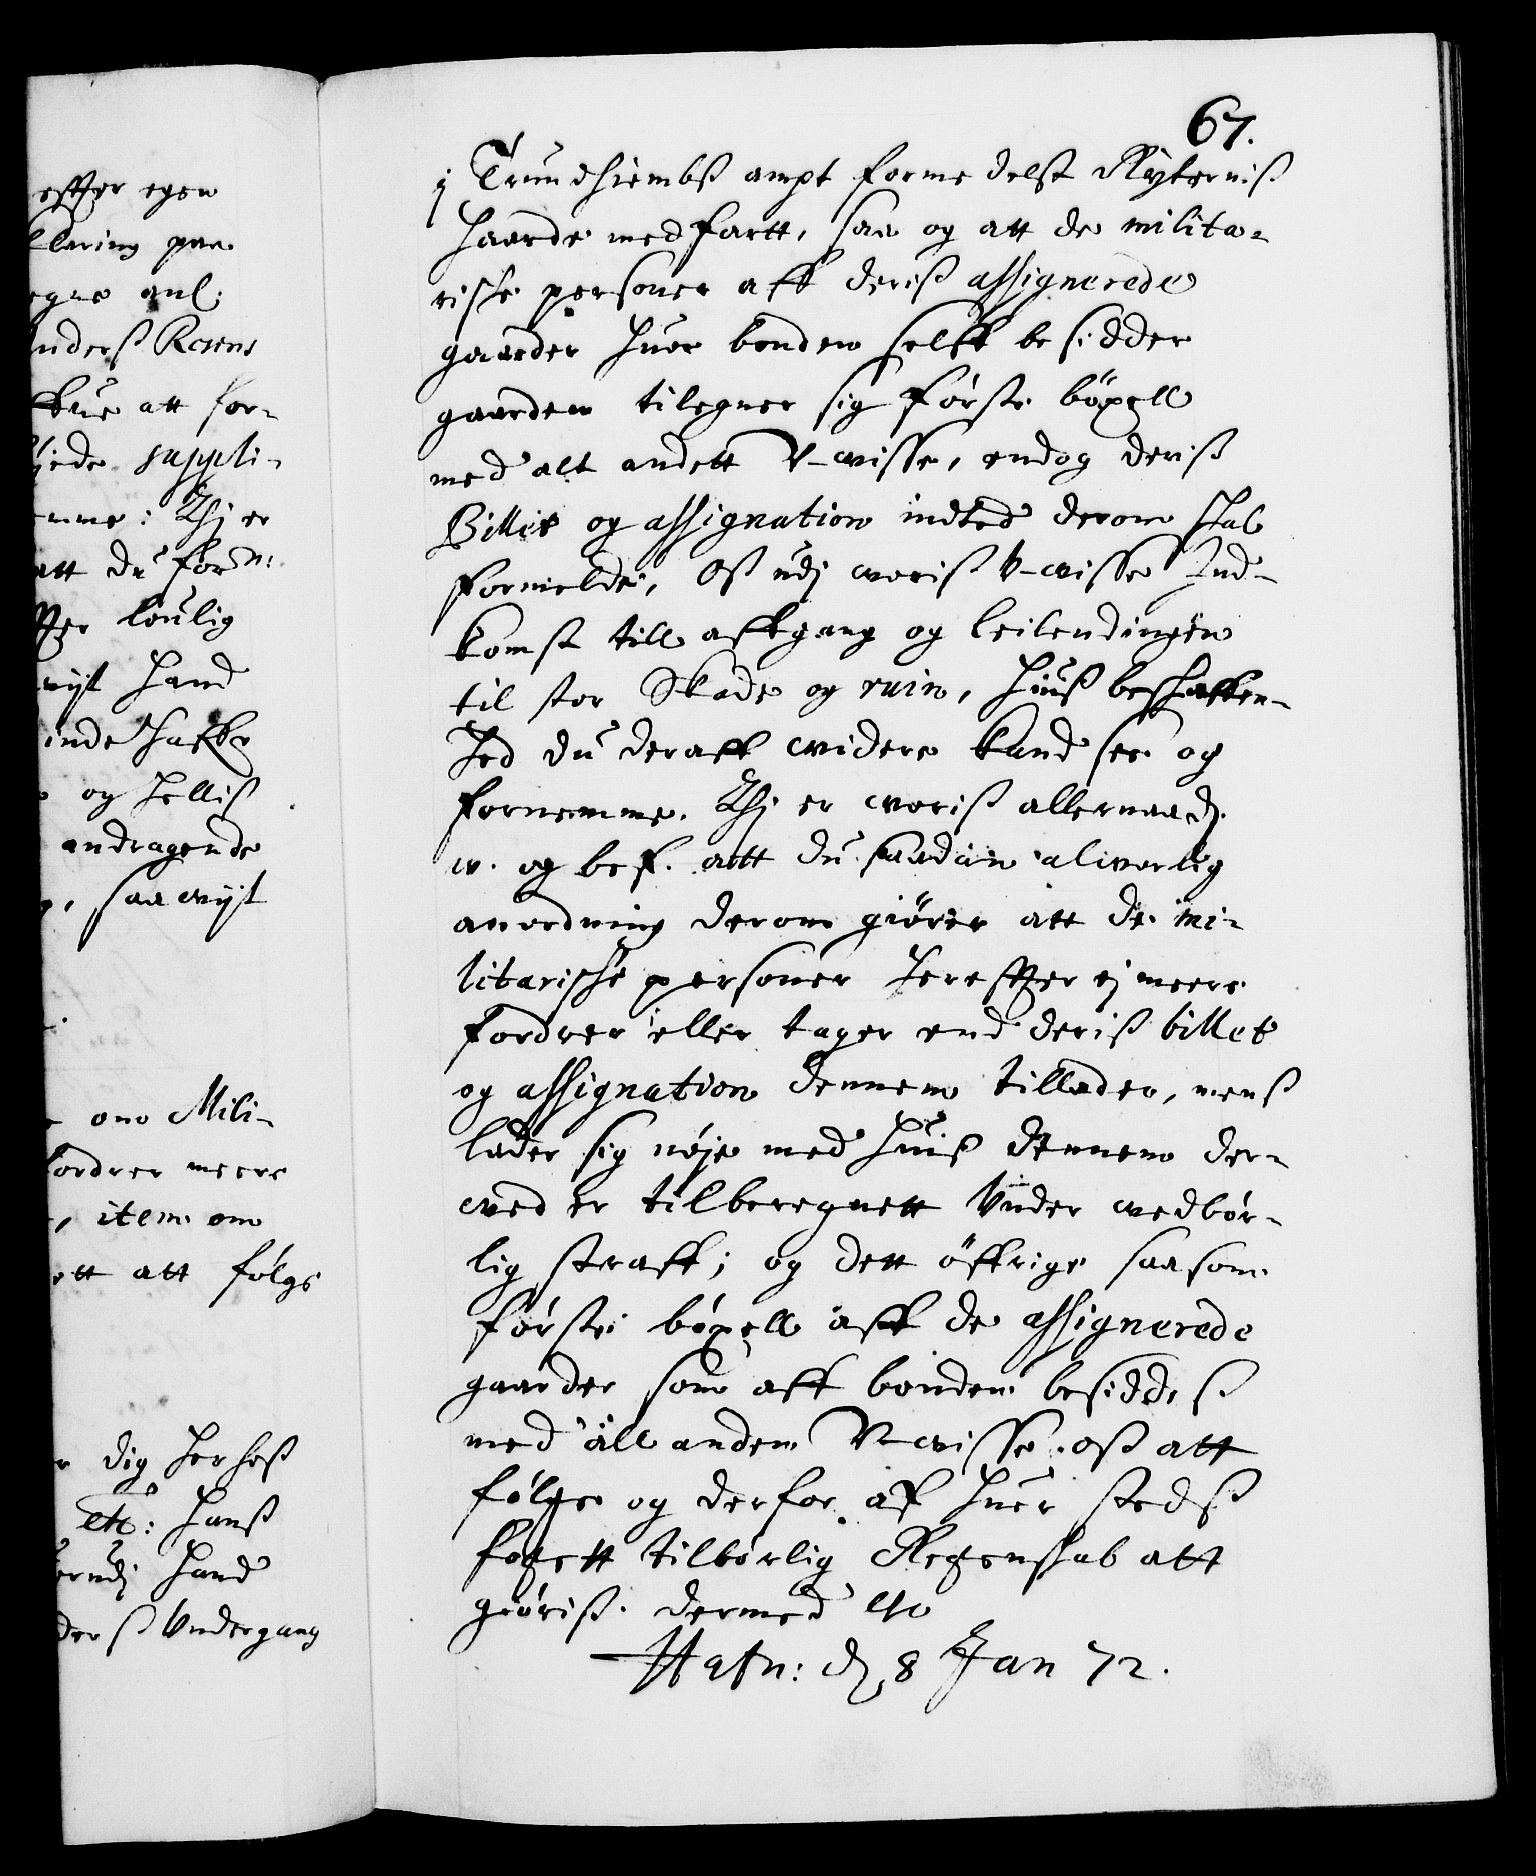 67.
effter egen
klaring paa
egne anl:
anderß Resens
kue att for-
suppli-
emme: Thj er
att du form.
louglig
wijt hand
inde haffr
og hellis
andragende
saa wijt
om Mili-
fordrer meere
item om
ett att følge
dig herhoß
etc: hanß
erudj hand
derß Vndergang
j Trundhiembß ampt formedelst Rytterniß
haarde medfartt, saa og att de milita-
riske personer aff deriß assignerede
gaarder huor bonden selff besidder
gaarden tilegner sig første böxell
med alt andett V-wisse, endog deriß
Billit og assignation indted derom skal
formelde, Oß udj woriß V-wisse Ind-
komst till affgang og leilendingen
til stor Skade og ruin, huiß beskaffen-
hed du deraff widere kand see og
fornemme. Thj er woriß allernaadj.
w. og bef. att du saadan alworlig
anordning derom giører att de mi-
litariske personer hereffter ej meere
fordrer eller tager end deriß billet
og assignation dennem tillader, menß
lader sig nøje med huiß dennem der-
wed er tilberegnett Vnder wedbør-
lig straff; og dett öffrige saasom
første böxell aff de assignerede
gaarder som aff bønden besiddeß
med all anden V-wisse oß att
følge og derfor aff huer stedß
fogett tilbørlig Regenskab att
giøriß. dermed etc
Hafn: dj 8 Jan 72.